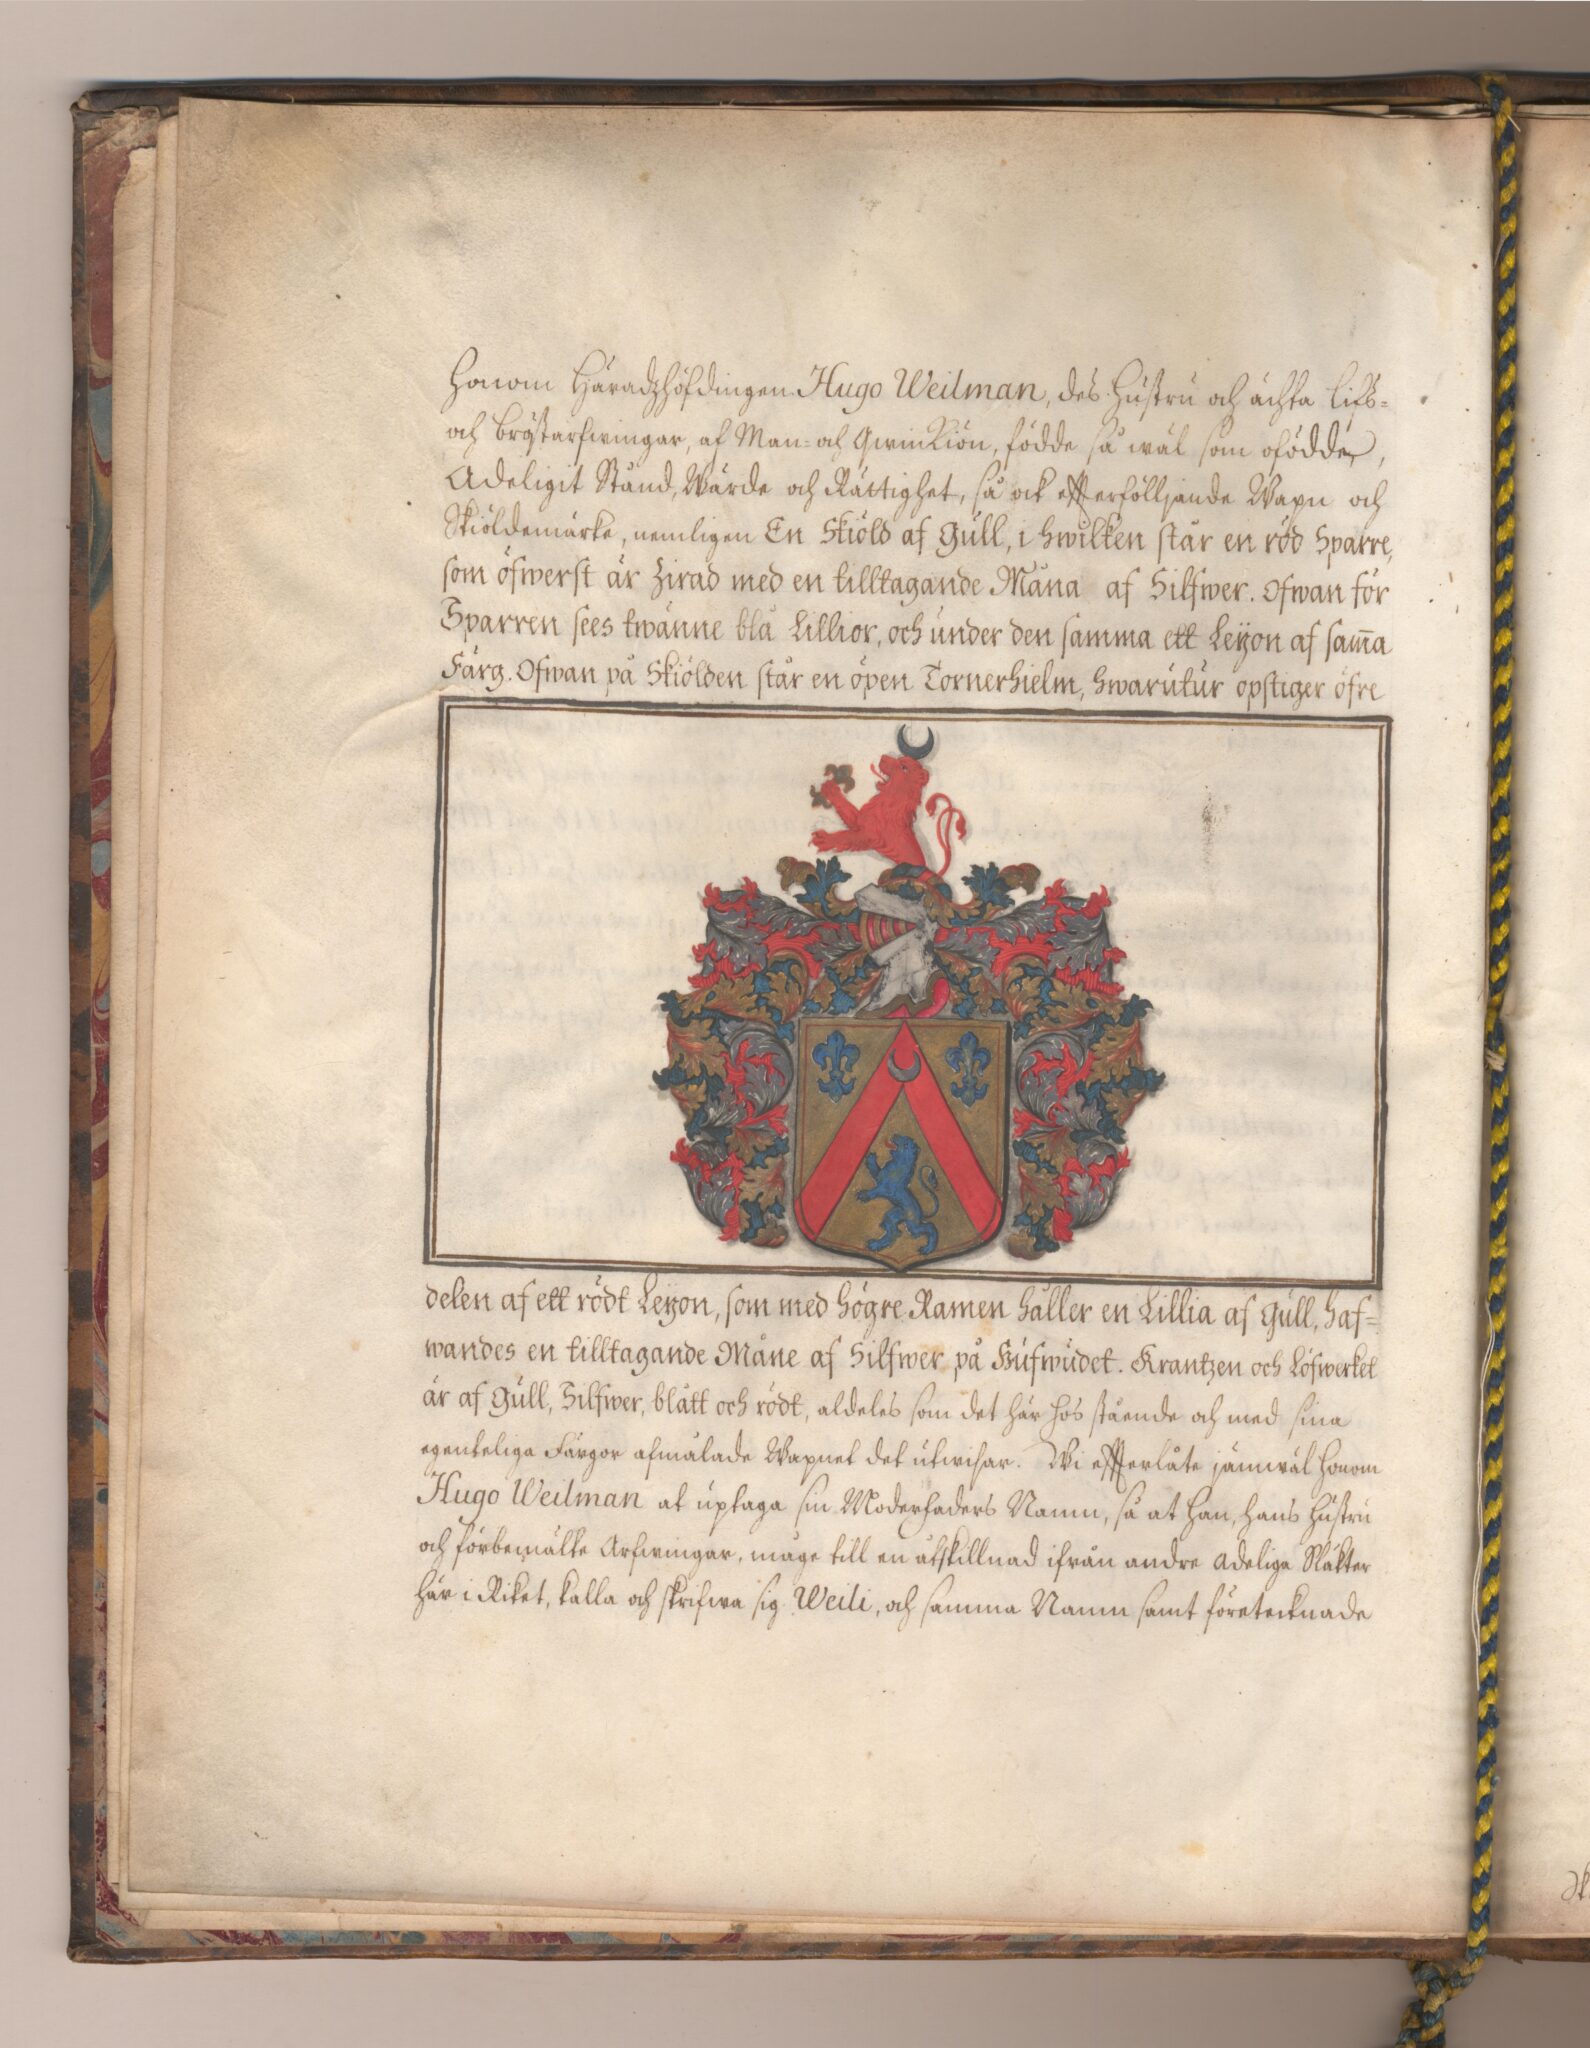 Honom Häradzhöfdingen Hugo Weilman, des Hustru och ächta Lifs=
och bröstarfwingar, af Man= och Qwinkiön, födde så wäl som ofödde,
Adeligit Stånd, Wärde och Rättighet, så ock effterfölljande Wapn och
Skiöldemärke, nemligen En Skiöld af Gull, i hwilken står en röd Sparre,
som öfwerst är Zirad med en tilltagande Måna af Silfwer. Ofwan för
Sparren sees twänne blå Lillior, och under den samma ett Leyon af sam̄a
Färg. Ofwan på Skiölden står en öpen Tornerhielm, hwarutur opstiger öfre
delen af ett rödt Leyon, som med högre Ramen håller en Lillia af Gull, haf=
wandes en tilltagande Måne af Silfwer på Hufwudet. Krantzen och Löfwerket
är af Gull, Silfwer, blått och rödt, aldeles som det här hos stående och med sina
egenteliga Färgor afmålade Wapnet det utwisar. Wi effterlåte jämwäl honom
Hugo Weilman at uptaga sin Moderfaders Namn, så at han, hans Hustru
och förbemälte Arfwingar, måge till en åtskillnad ifrån andre Adeliga Släkter
här i Riket, kalla och skrifwa sig Weili, och samma Namn samt företecknade